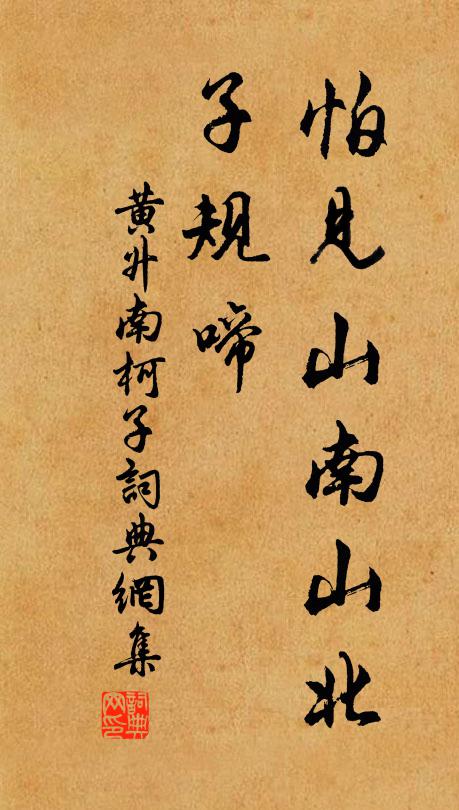 怕見山南山北
子規啼
黄升南柯子詞典網集
詞典
网印